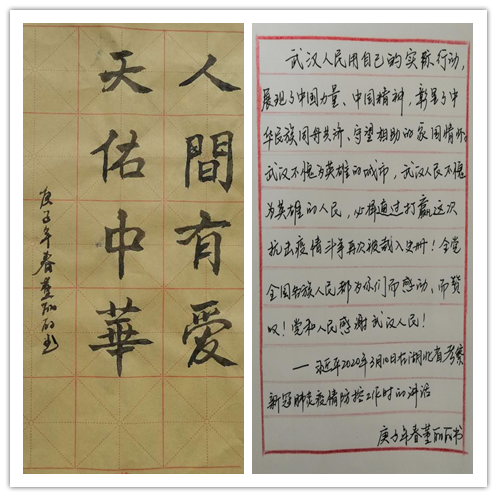 人間有愛
天佑中華
庚子年春董丽丽书
武汉人民用自己的实际行动,
展现了中国力量、中国精神,彰显了中
华民族同舟共济、守望相助的家国情怀。
武汉不愧为英雄的城市,武汉人民不愧
为英雄的人民,必将通过打赢这次
抗击疫情斗争再次被载入史册!全党
全国各族人民都为你们而感动、而赞
叹!党和人民感谢武汉人民!
——习近平2020年3月10日在湖北省考察
新冠肺炎疫情防控工作时的讲话
庚子年春董丽丽书